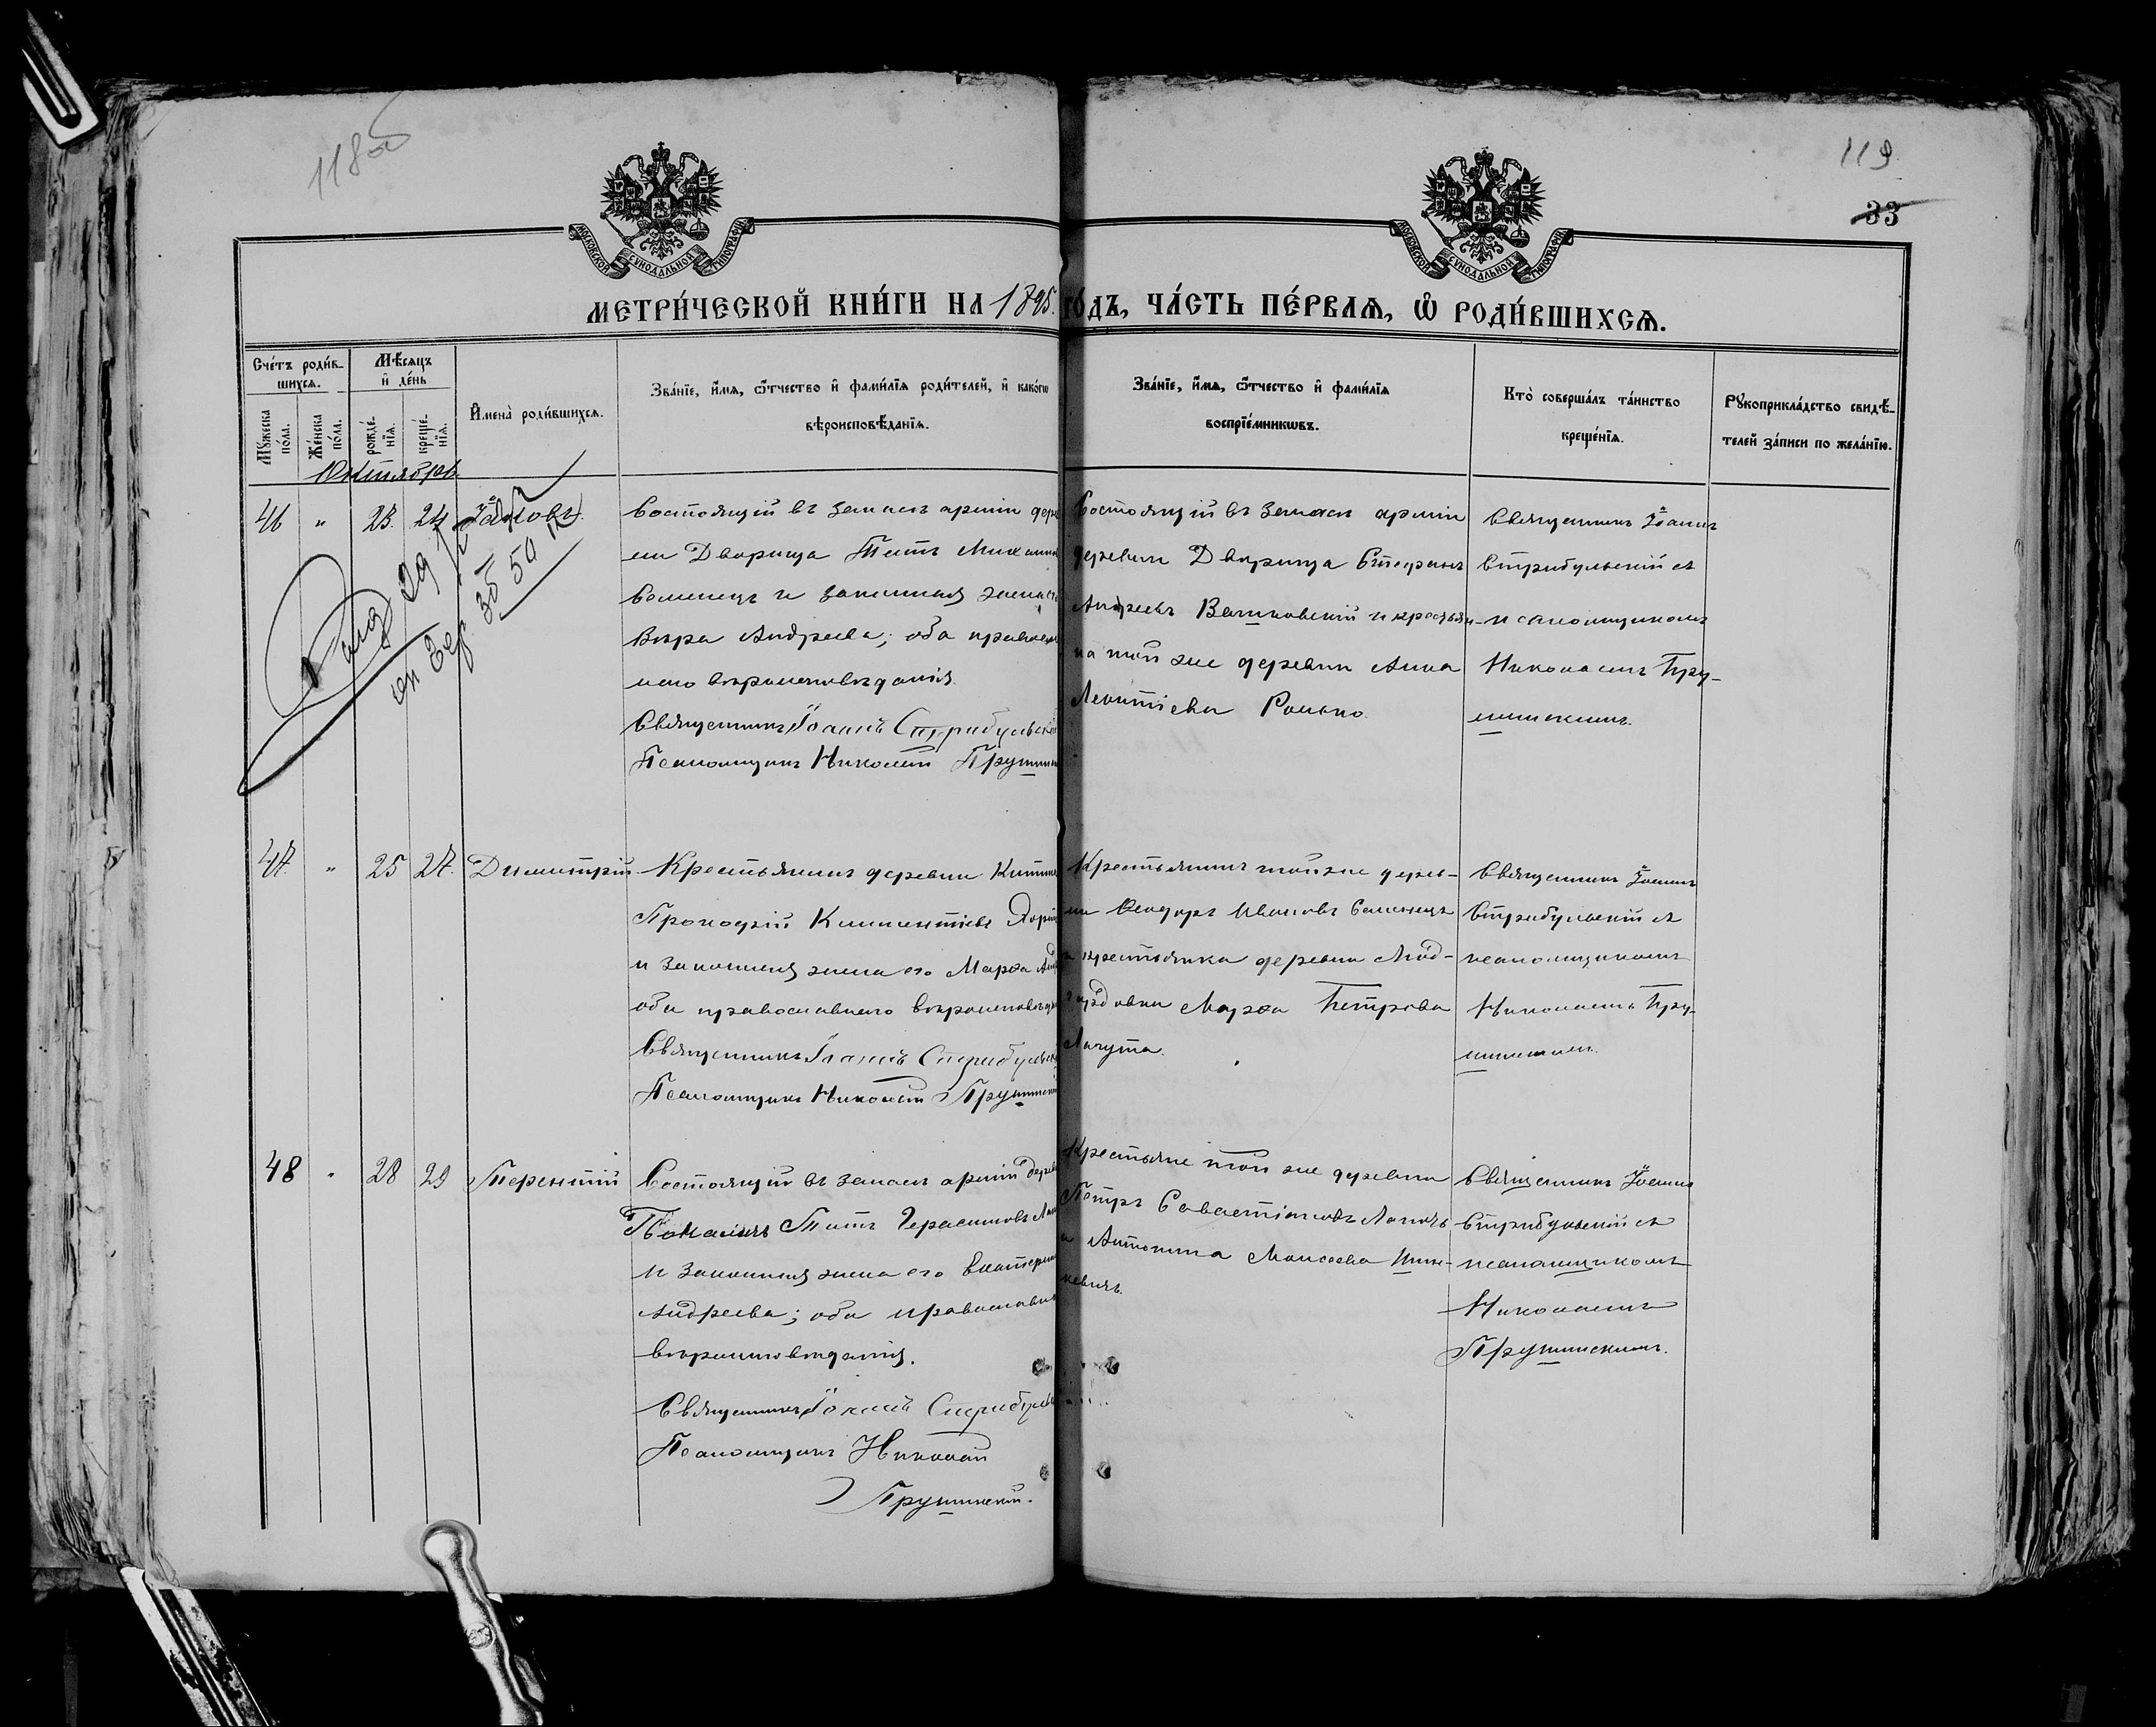 118об
119
33
МОСКОВСКОЙ СУНОДАЛЬНОЙ ТИПОГРАФІИ
МОСКОВСКОЙ СУНОДАЛЬНОЙ ТИПОГРАФІИ
МЕТРИ́ЧЕСКОЙ КНИ́ГИ НА 1895 ГО́ДЪ, ЧА́СТЬ ПЕ́РВАѦ, Ѡ҆ РОДИ́ВШИХСѦ.
Сче́тъ роди́в-
шихсѧ.
Мꙋ́жеска
по́ла.
Же́нска
по́ла.
Мѣ́сѧцъ
и҆ де́нь
рожде́-
нїѧ.
креще́-
нїѧ.
И҆мена̀ роди́вшихсѧ.
Зва́нїе, и҆́мѧ, ѻ҆́тчество и҆ фами́лїѧ роди́телей, и҆ како́гѡ
вѣроисповѣ́данїѧ.
Зва́нїе, и҆́мѧ, ѻ҆́тчество и҆ фами́лїѧ
воспрїе́мникѡвъ.
Кто̀ соверша́лъ та́инство
креще́нїѧ.
Рꙋкоприкла́дство свидѣ́-
телей за́писи по жела́нїю.
Октябрь
46 " 23. 24 Іаковъ.
Состоящій въ запасѣ арміи дерев
ни Дворища Титъ
и законная жена его
Вѣра Андреева; оба православ
наго вѣроисповѣданія.
Священникъ Іоаннъ Стрибульскій
Псаломщикъ Николай Прушин
Состоящій въ запасѣ арміи
деревни Дворища Стефанъ
Андреевъ Вашковскій и крестьян-
ка той же деревни Анна
Леонтіева Ронько.
Священникъ Іоаннъ
Стрибульскій съ
псаломщикомъ
Николаемъ Пру-
шинскимъ.
47. " 25 27. Димитрій
Крестьянинъ деревни
Прокофій Климентіевъ
и законная жена его Марѳа
оба православнаго вѣроисповѣдан
Священникъ Іоаннъ Стрибульск
Псаломщикъ Николай Прушинскій
Крестьянинъ той же дерев-
ни Ѳеодоръ Ивановъ Саменецъ
и крестьянка деревни
Марѳа Петрова
Лагута.
Священникъ Іоаннъ
Стрибульскій съ
псаломщикомъ
Николаемъ Пру-
шинскимъ.
48 " 28 29 Терентій
Состоящій въ запасѣ арміи дерев
Титъ Герасимовъ
и законная жена его Екатерина
Андреева; оба православнаго
вѣроисповѣданія.
Священникъ Іоаннъ Стрибульс
Псаломщикъ Николай
Прушинскій.
Крестьяне той же деревни
Петръ Савастіановъ
и Антонина Моисеева
кевичъ.
Священникъ Іоаннъ
Стрибульскій съ
псаломщикомъ
Николаемъ
Прушинскимъ.